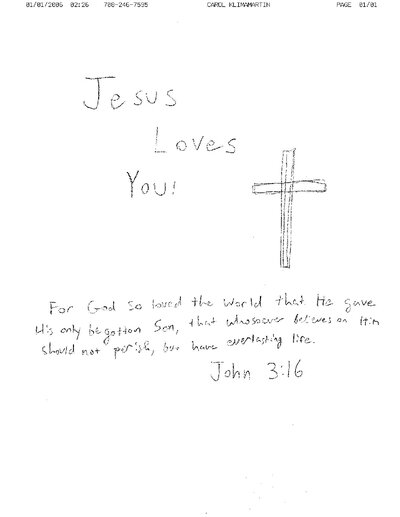 01/01/2006 02:26 708-246-7595 CAROL KLIMAMARTIN PAGE 01/01
Jesus
Loves
You!
For God so loved the World that He gave
His only begotton Son, that whosoever believes on Him
should not perish, but have everlasting life.
John 3:16